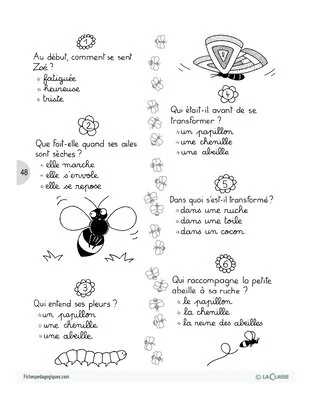 1
Au début, comment se sent
Zoé ?
fatiguée
heureuse
triste
2
Que fait-elle quand ses ailes
sont sèches ?
elle marche
elle s'envole
elle se repose
48
3
Qui entend ses pleurs ?
un papillon
une chenille
une abeille
4
Qui était-il avant de se
transformer ?
un papillon
une chenille
une abeille
5
Dans quoi s'est-il transformé ?
dans une ruche
dans une toile
dans un cocon
6
Qui raccompagne la petite
abeille à sa ruche ?
le papillon
la chenille
la reine des abeilles
Fichespedagogiques.com
© LACLASSE